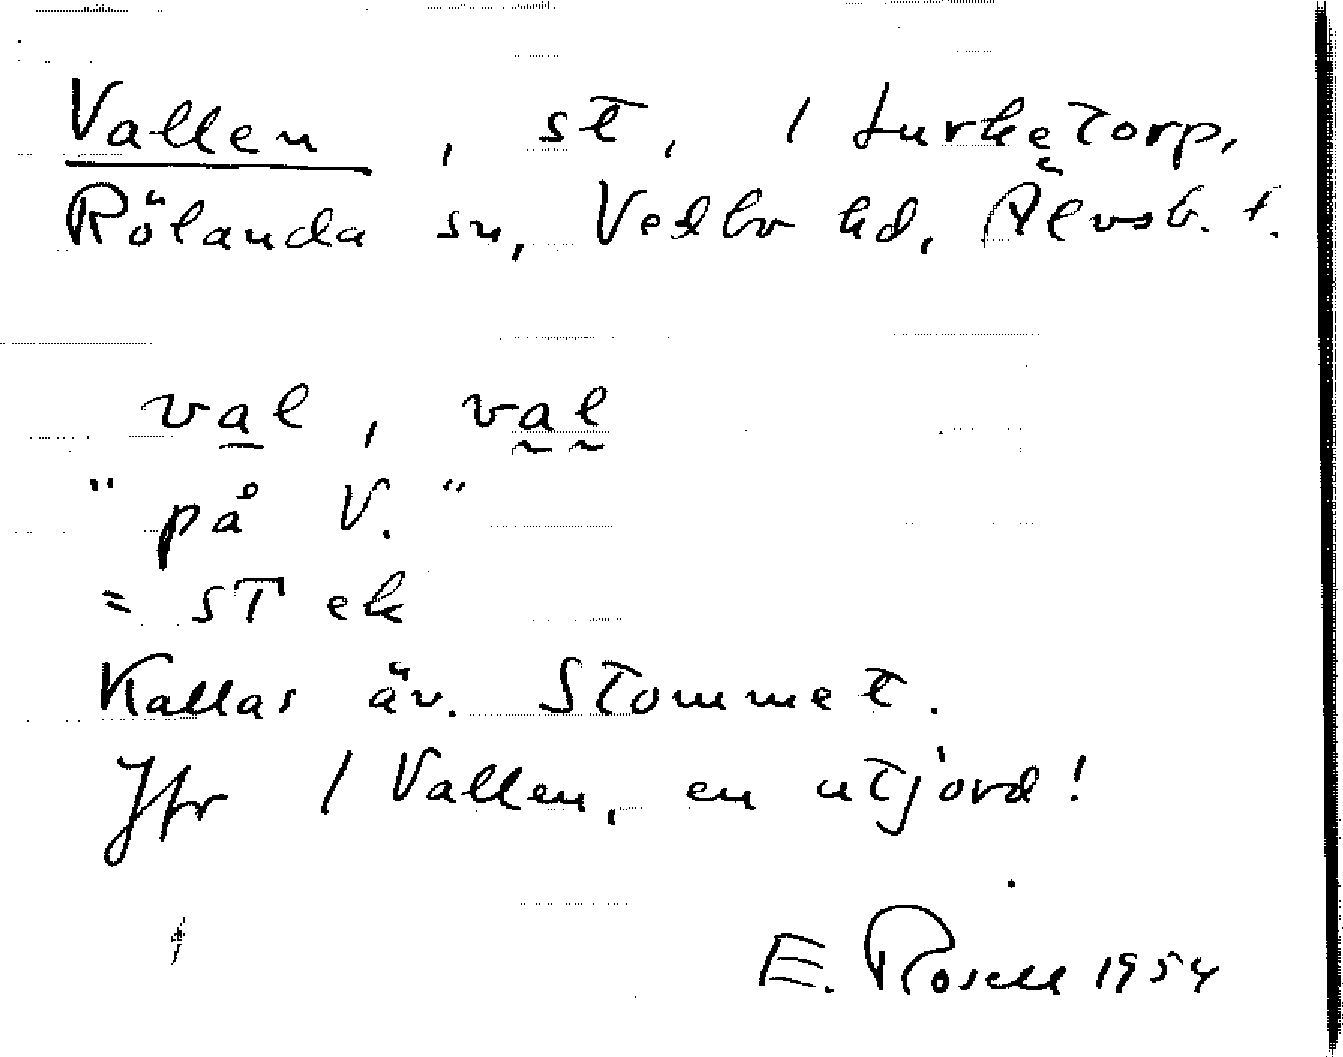 Vallen, st, / Lurketorp,
Rölanda sn, Vedbo hd, Älvsb. l.
val, val
"på V."
= st ek
Kallas äv. Stommet.
Jfr / Vallen, en utjord!
E. Rosell 1954